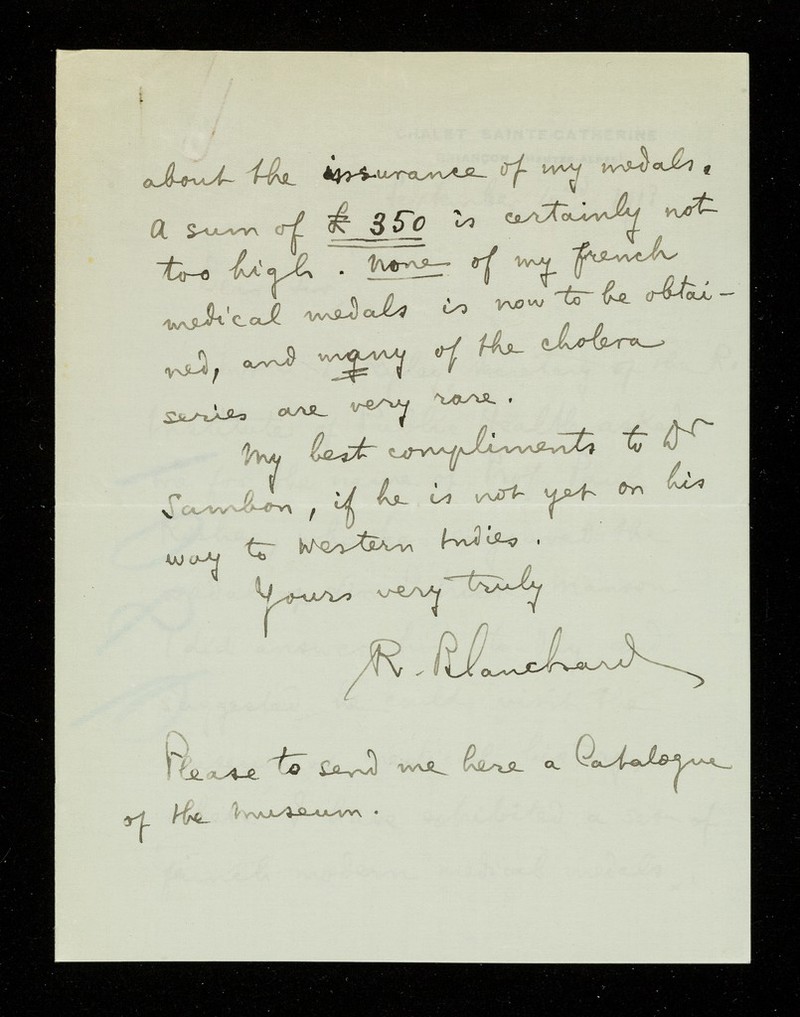 about the insurance of my medals.
A sum of £ 350 is certainly not
too high. None of my french
medical medals is now to be obtai-
ned, and many of the cholera
series are very rare.
My best compliments to Dr
Sambon, if he is not yet on his
way to Western Indies.
Yours very truly
R. Blanchard
Please to send me here a Catalogue
of the Museum.